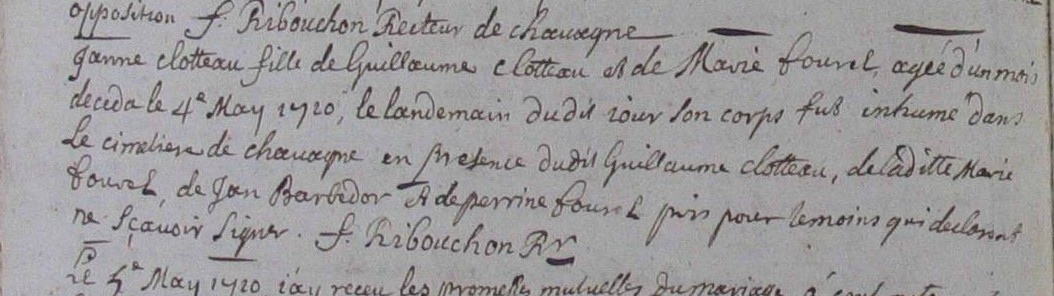 opposition f. Ribouchon Recteur de chavagne
Janne clotteau fille de Guillaume clotteau et de Marie fouret, agée d'un mois
deceda le 4e May 1720, le landemain dudit iour son corps fut inhumé dans
Le cimetiere de chavagne en presence dudit Guillaume clotteau, de laditte Marie
fouret, de Jan Barbedor et de perrine fouret pris pour temoins qui declarent
ne sçavoir signer. f. Ribouchon Rr
Le 5e May 1720 i'ay receu les promesses mutuelles du mariage